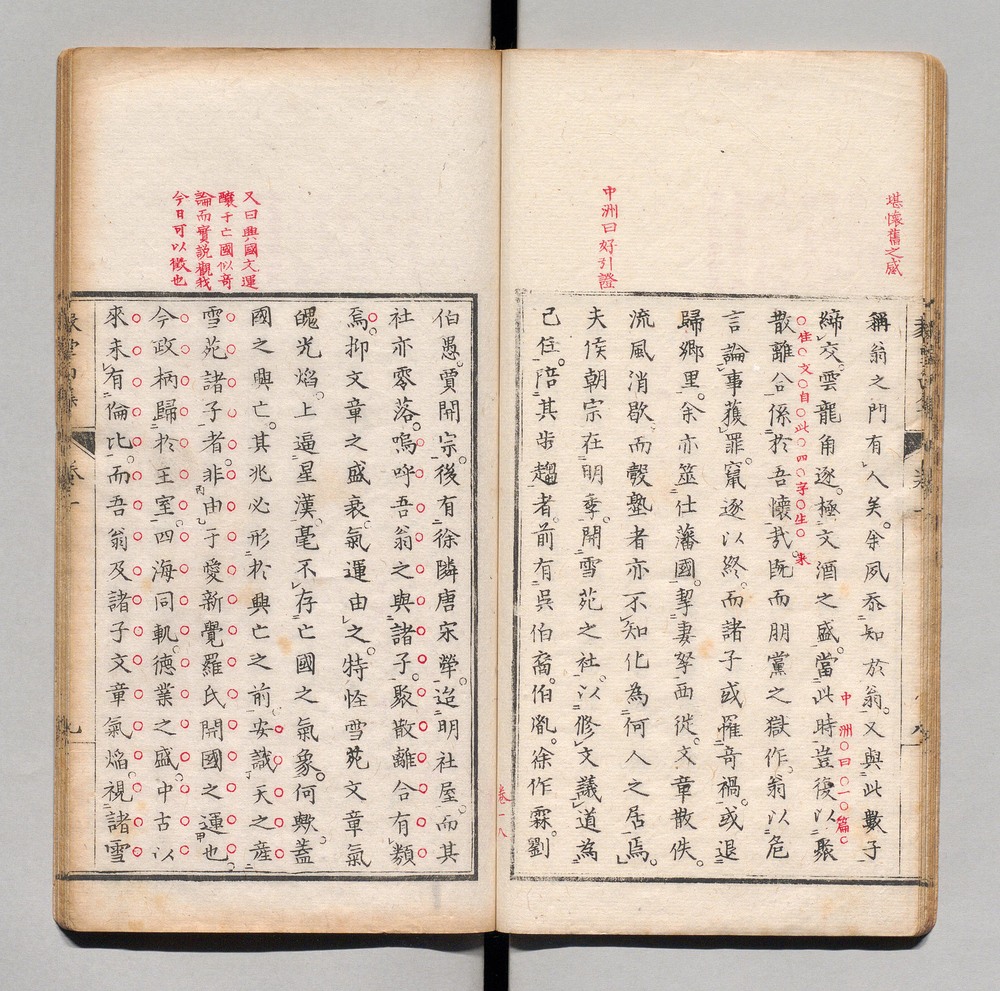 堪懷舊之感
中洲曰好引證
稱翁之門有人矣余夙忝知於翁又與此數子
中洲曰一篇
締交雲龍角逐極文酒之盛當此時豈復以聚
佳文自此四字生來
散離合係於吾懷哉既而朋黨之獄作翁以危
言論事獲罪竄逐以終而諸子或罹奇禍或退
歸鄉里余亦筮仕藩國挈妻孥西從文章散佚
流風消歇而彀塾者亦不知化為何人之居焉
夫侯朝宗在明季開雪苑之社以修文議道為
己任陪其步趨者前有吳伯裔伯胤徐作霖劉
又曰興國文運
釀于亡國似奇
論而實說觀我
今日可以徵也
伯愚賈開宗後有徐隣唐宋犖迨明社屋而其
社亦零落嗚呼吾翁之與諸子聚散離合有類
焉抑文章之盛衰氣運由之特怪雪苑文章氣
魄光焰上逼星漢毫不存亡國之氣象何歟蓋
國之興亡其兆必形於興亡之前安識天之產
雪苑諸子者非由于愛新覺羅氏開國之運也
今政柄歸於王室四海同軌德業之盛中古以
來未有倫比而吾翁及諸子文章氣焰視諸雪
卷一
九
卷一八